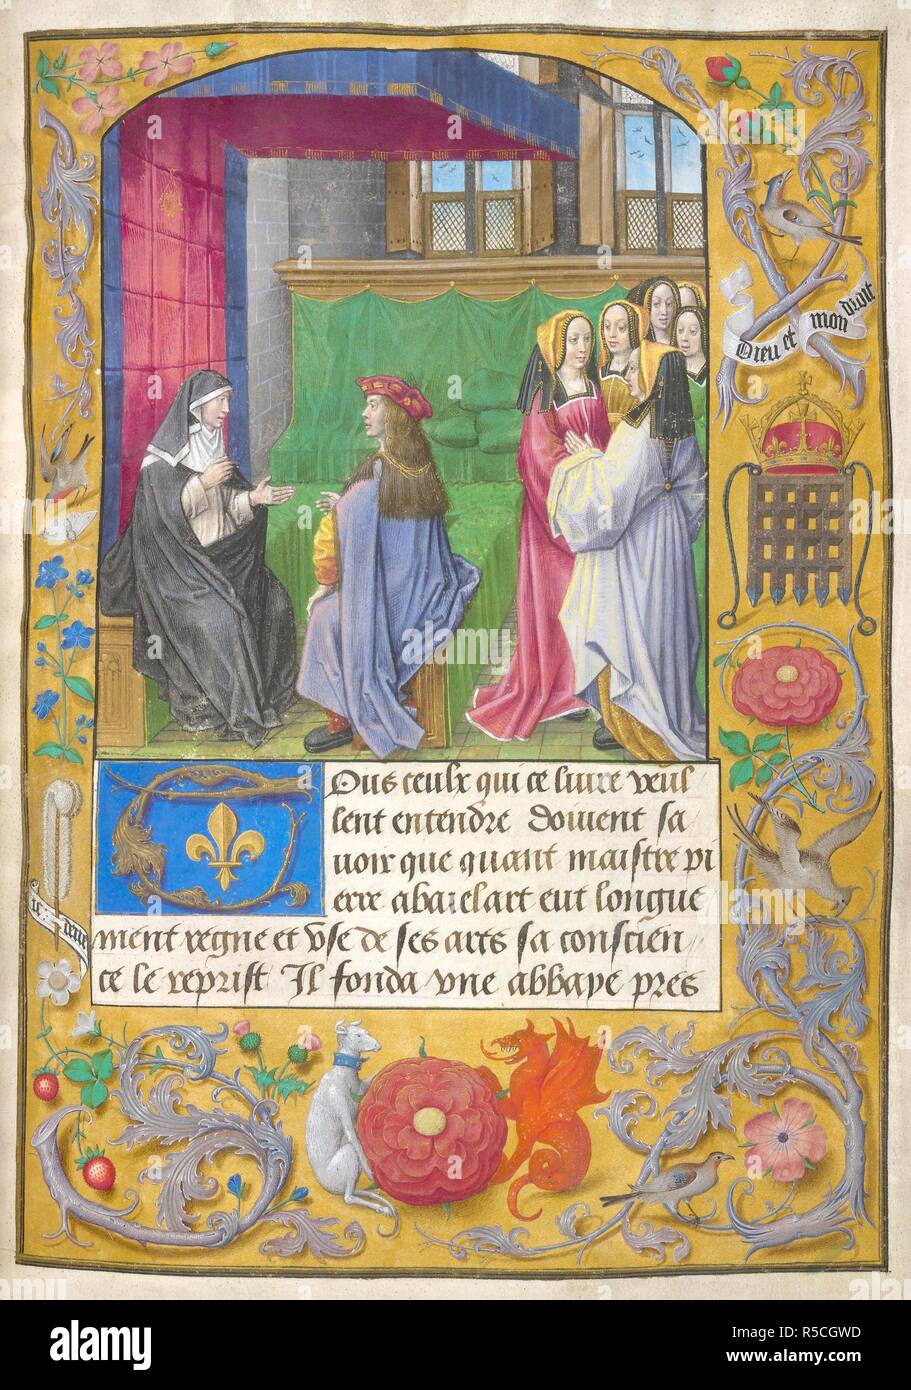 Dieu et mon droit
Ous ceulx qui ce livre veul
lent entendre doivent sa
voir que quant maistre pi
erre abaielart eut longue
ment regne et use de ses arts sa conscien
ce le reprist Il fonda une abbaye pres
alamy
Image ID: R5CGWD
www.alamy.com